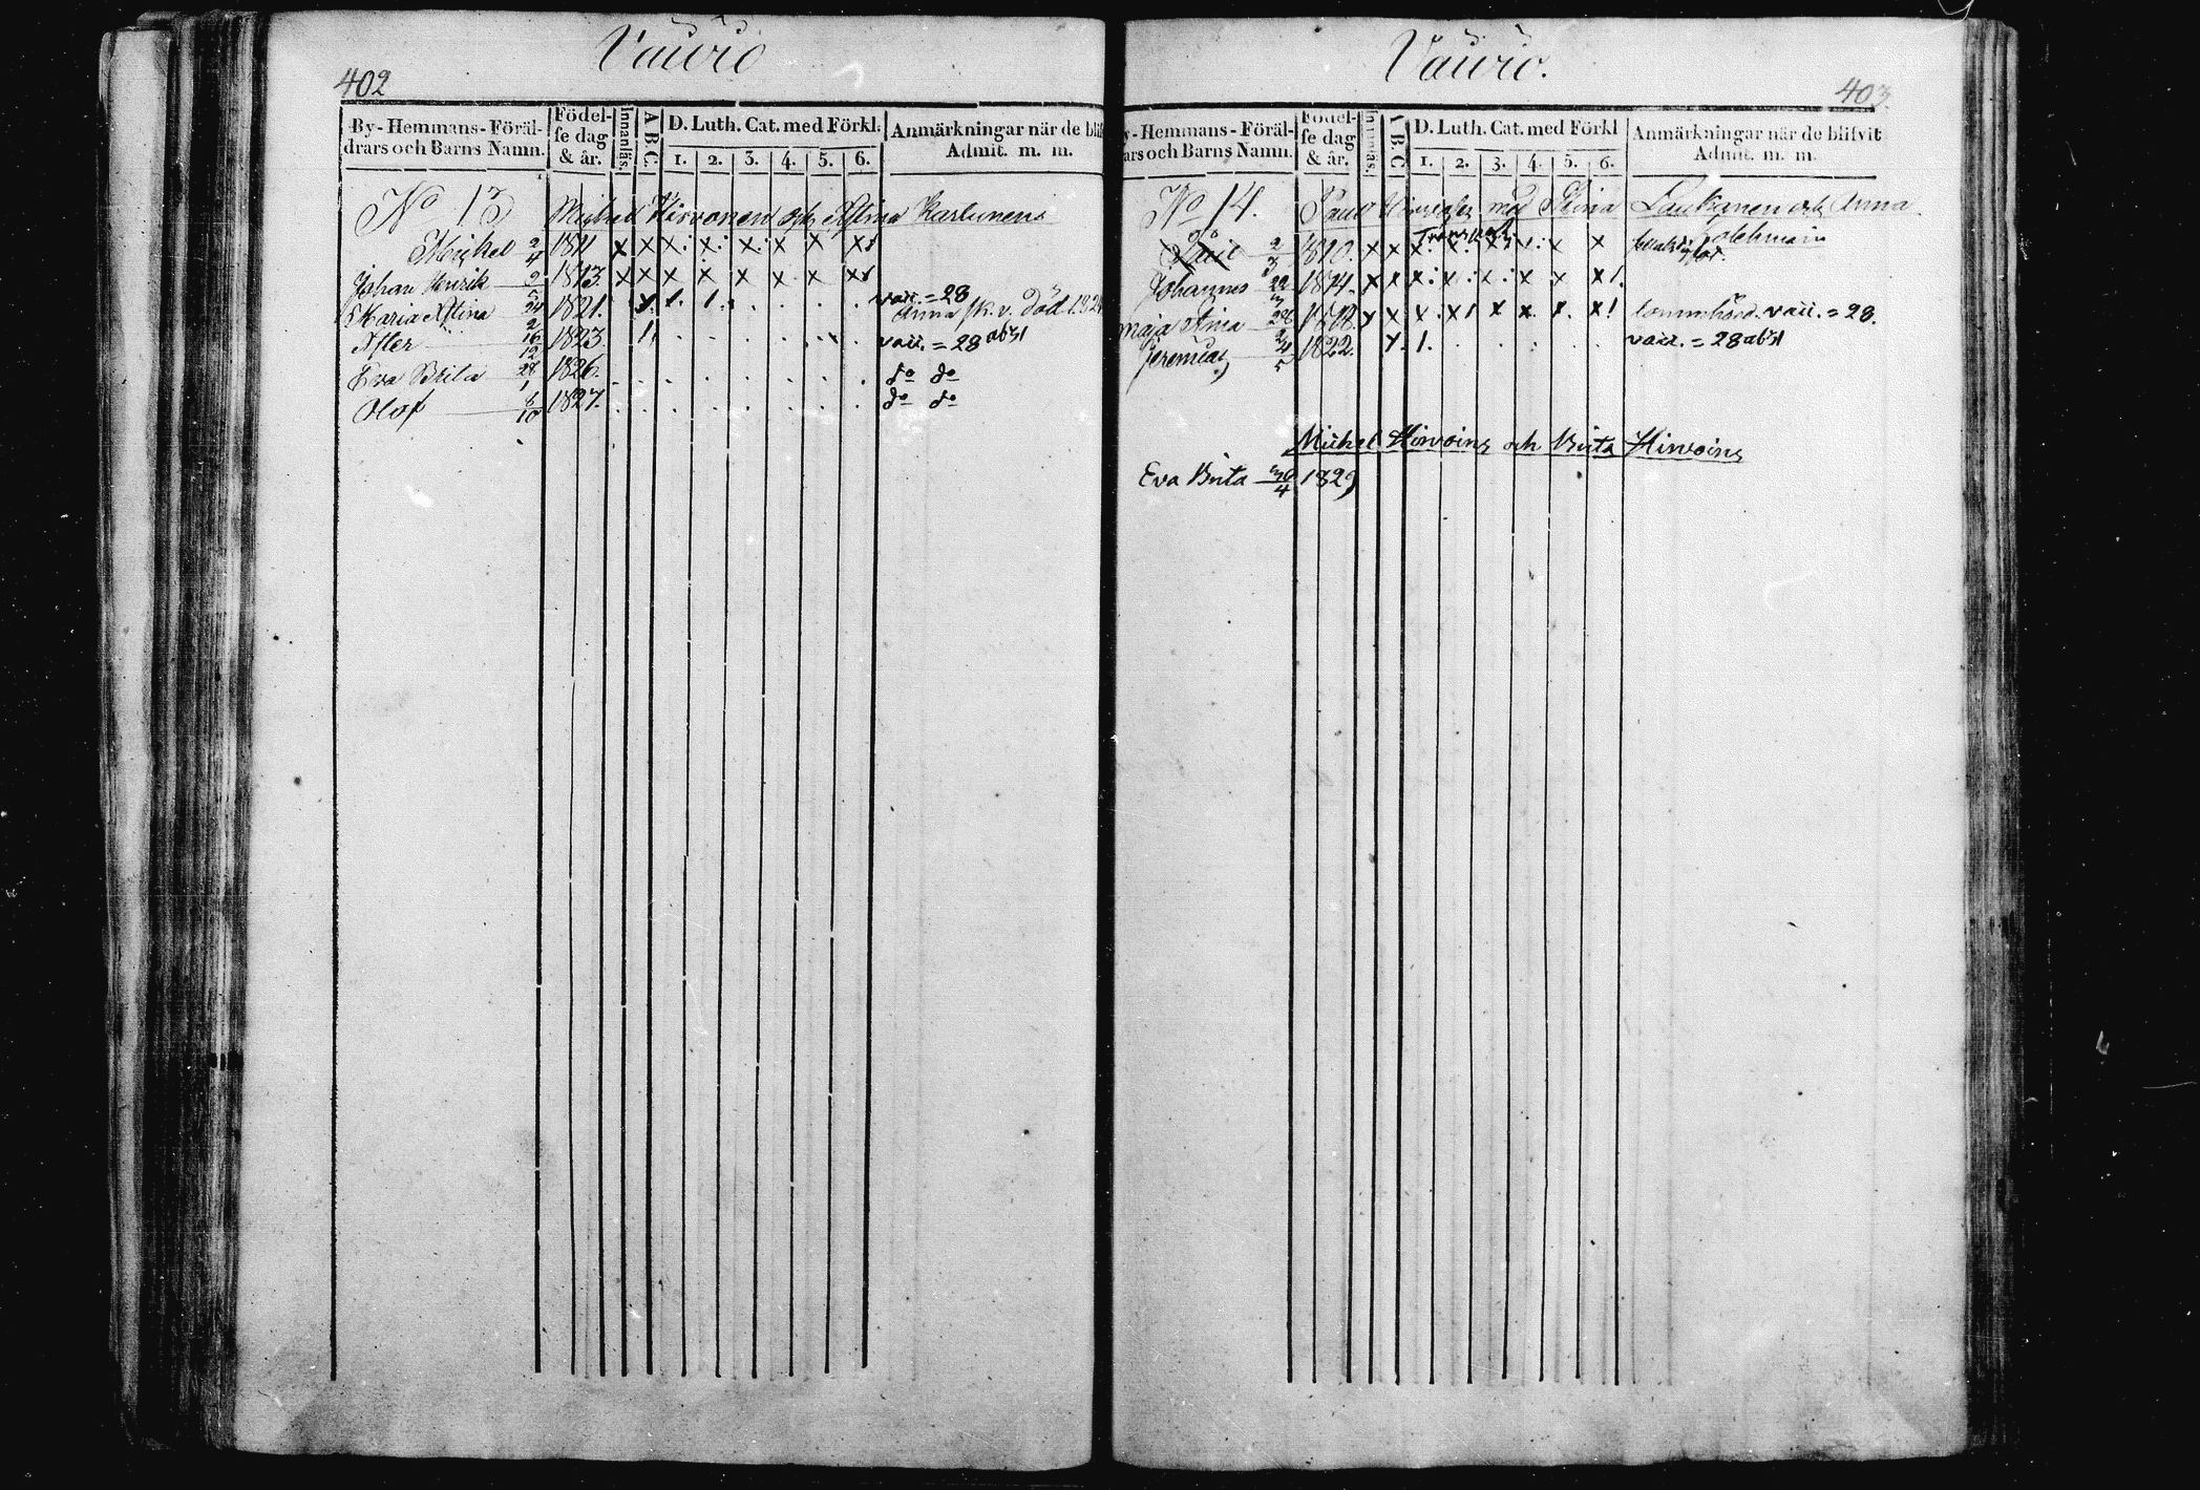 Vaurio
402
By-Hemmans-Föräl-
drars och Barns Namn.
Födel-
se dag
& år.
Innanläs.
A B C.
D. Luth. Cat. med Förkl.
1. 2. 3. 4. 5. 6.
Anmärkningar når de blif
Admit. m. m.
No 13 Michel Hirvonen och Stina Karlunens
Michel 2/4 1811 x x x: x: x: x x x
Johan Henrik 1813. x x x x x x x x
Maria Stina 24/2 1821. vacc. = 28
Anna sk. v. Död 182
16/12 1823. vacc. = 28 abst
Eva Brita 28/1 1826. do do
Olof 8/10 1827. do do
Vaurio.
403
y-Hemmans-Föräl-
ars och Barns Namn.
Födel-
se dag
& år.
Innanläs.
A B C
D. Luth. Cat. med Förkl
1. 2. 3. 4. 5. 6.
Anmärkningar når de blifvit
Admit. m. m.
No 14. med Stina Laukanen och Anna
1810. Transport
Johannes 22/3 1814. x x x: x: x: x x x!
maja Stina 28/2 1818. x x x. x! x x. x. x! vacc. = 28.
Jeremias 4/5 1822. vacc. = 28 abst
Michel Hirvoins och Brita Hirvoins
Eva Brita 30/4 1829